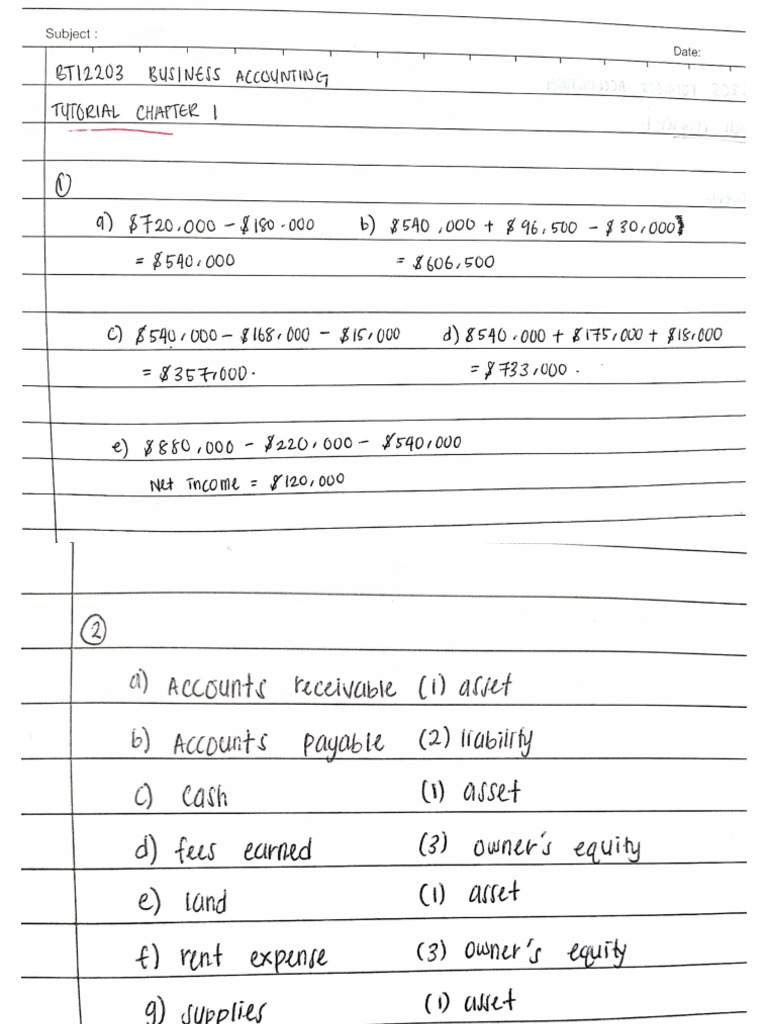 Subject :
Date:
BT12203 BUSINESS ACCOUNTING
TUTORIAL CHAPTER 1
①
a) $720,000 - $180.000 b) $540,000 + $96,500 - $30,000
= $540,000 = $606,500
c) $540,000 - $168,000 - $15,000 d) $540,000 + $175,000 + $18,000
= $357,000. = $733,000.
e) $880,000 - $220,000 - $540,000
Net income = $120,000
②
a) Accounts receivable (1) asset
b) Accounts payable (2) liability
c) cash (1) asset
d) fees earned (3) owner's equity
e) land (1) asset
f) rent expense (3) owner's equity
g) supplies (1) asset